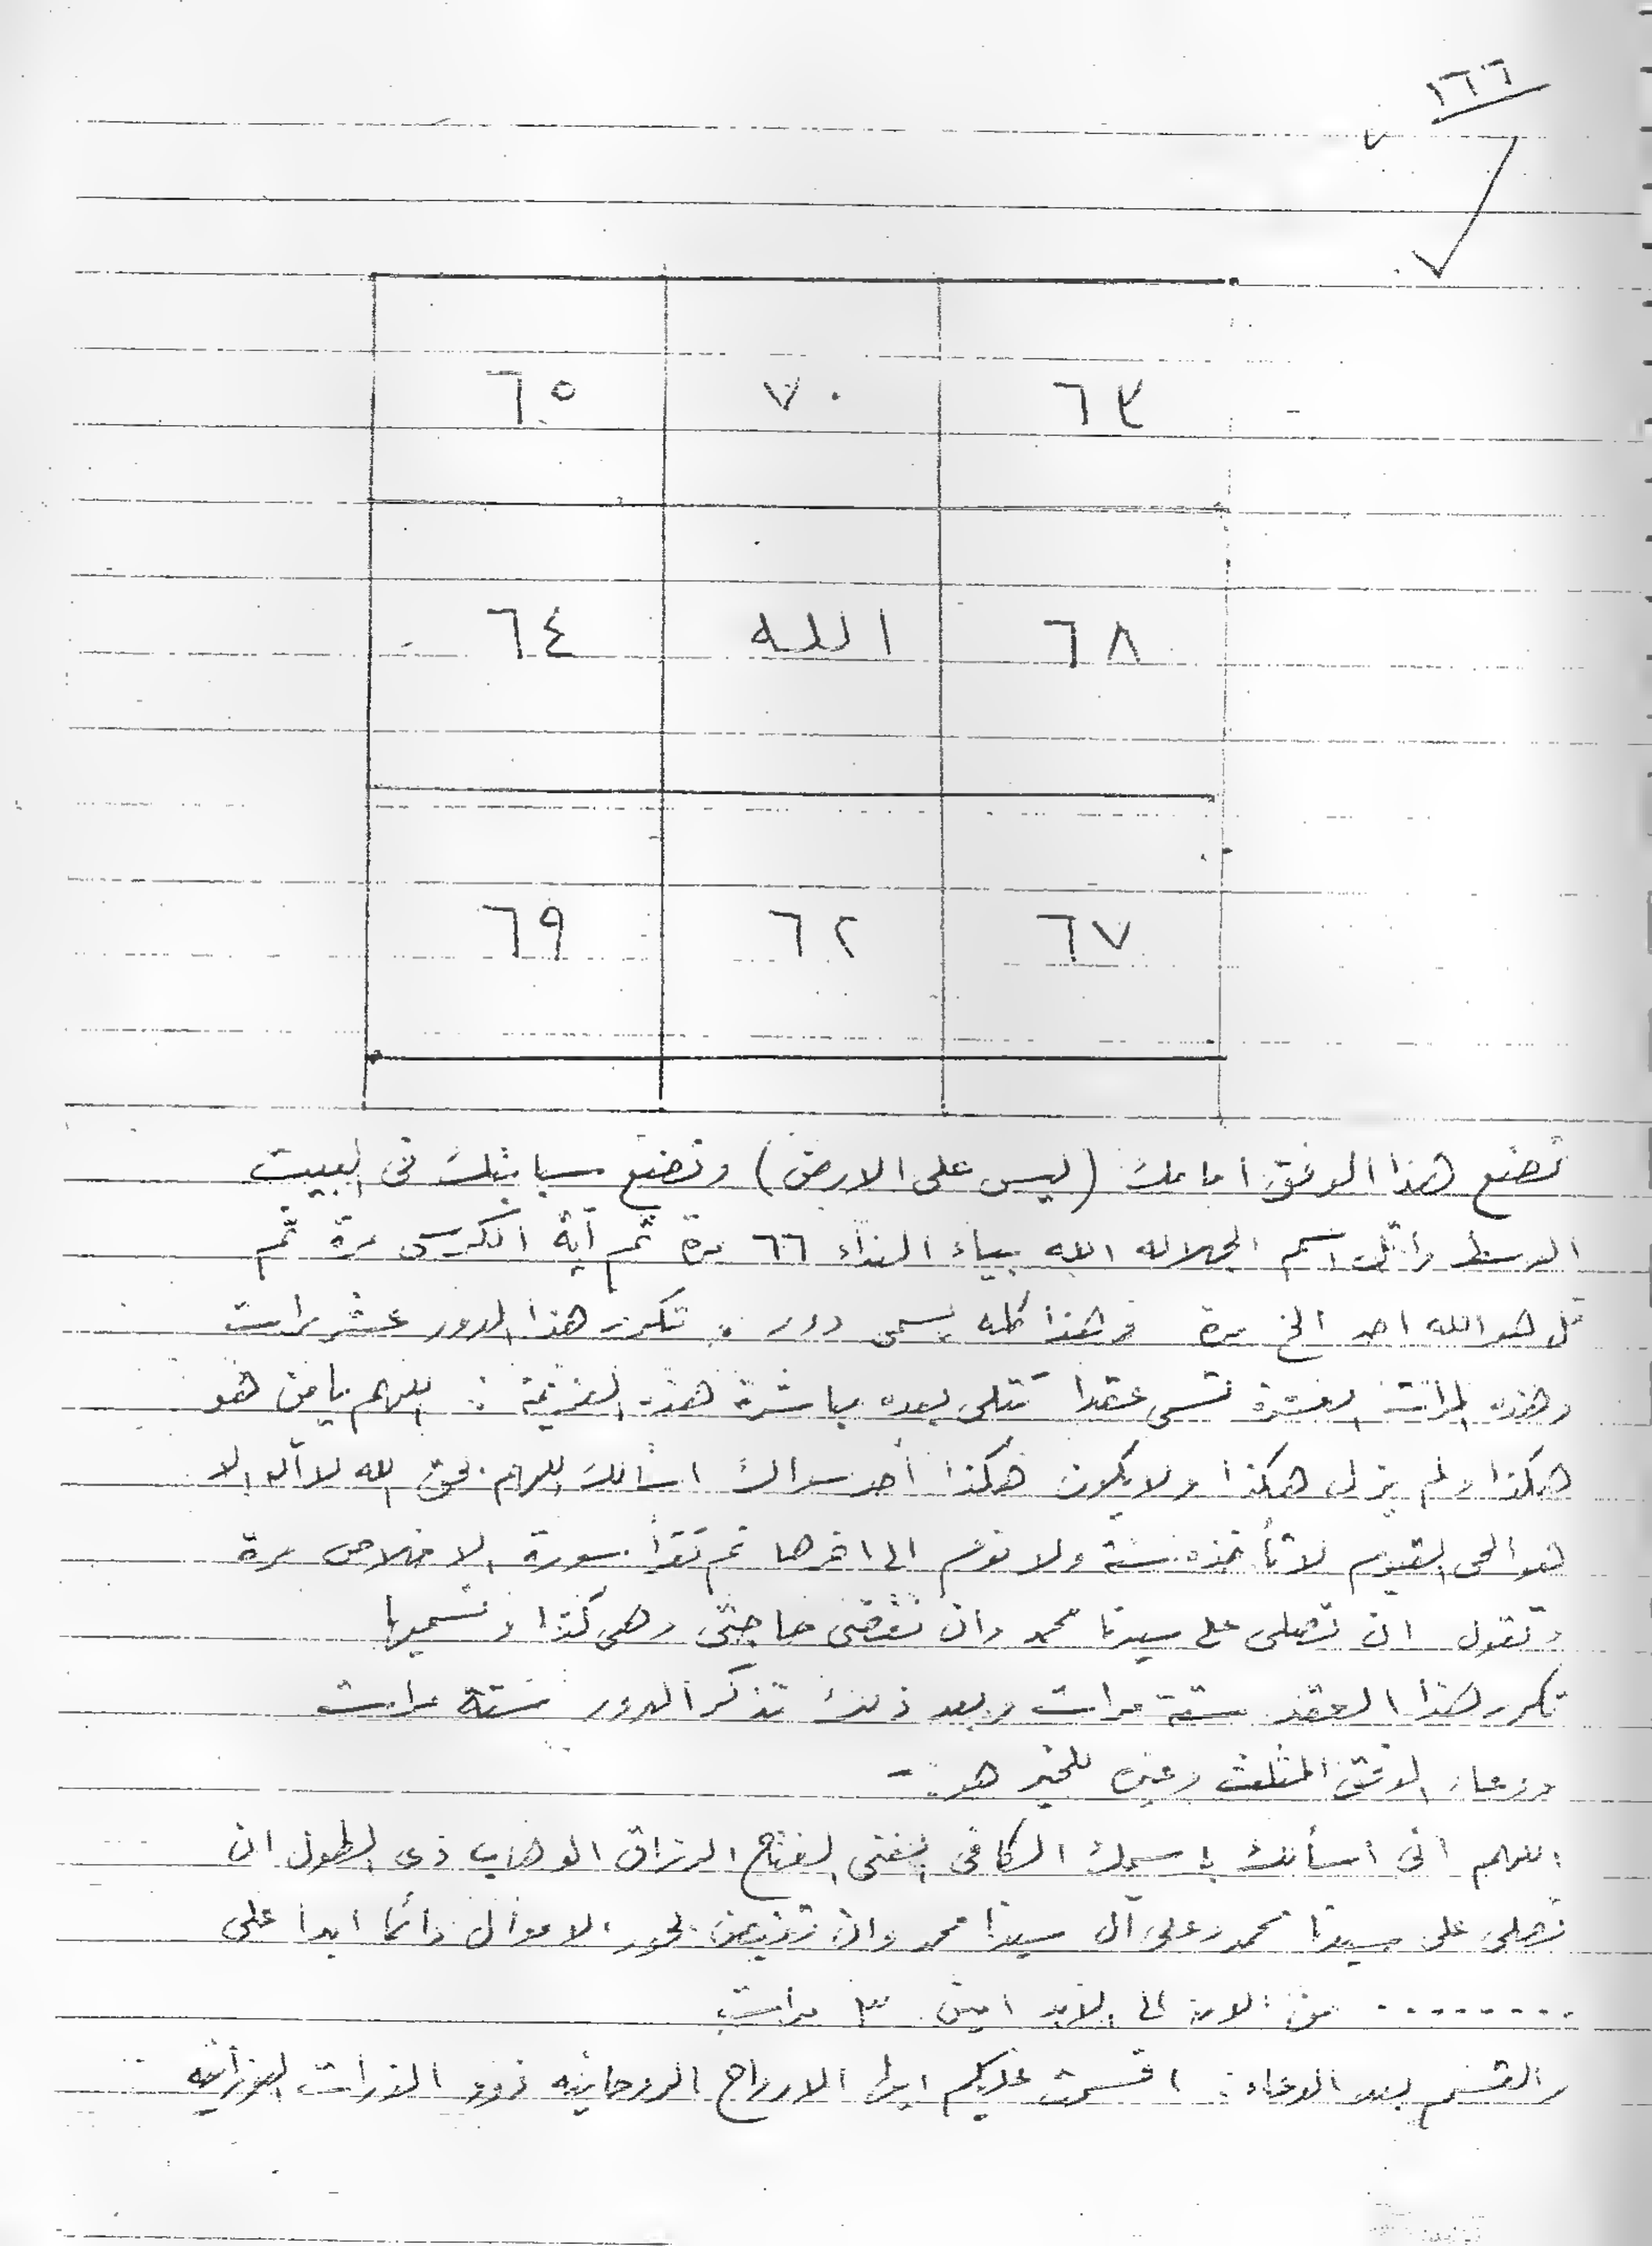 ١٦٦
٦٥ ٧٠ ٦٣
٦٤ الله ٦٨
٦٩ ٦٢ ٦٧
تضع هذا الوفق امامك (ليس على الارض) وتضع سبابتك فى البيت
الوسط واتلى اسم الجلاله الله بياء النداء ٦٦ مرة ثم آية الكرسى مرة ثم
قل هو الله احد الخ مرة وهذا كله يسمى دور . تكرر هذا الدور عشر مرات
وهذه المرات العشرة تسمى عقدا تتلى بعده مباشرة هذه العزيمة : اللهم يا من هو
هكذا ولم يزل هكذا ولا يكون هكذا أحد سواك اسألك اللهم بحق الله لا آله الا
هو الحى القيوم لا تأخذه سنة ولا نوم الى اخرها ثم تقرأ سورة الاخلاص مرة
وتقول ان تصلى على سيدنا محمد وان تقضى حاجتى وهى كذا وتسميها
تكرر هذا العقد ستة مرات وبعد ذلك تذكر الدور ستة مرات
ودعاء الوفق المثلث وغيره للخير هو :-
اللهم انى اسألك باسمك الكافى الغنى الفتاح الرزاق الوهاب ذى الطول ان
تصلى على سيدنا محمد وعلى آل سيدنا محمد وان تفيض بحور الاموال دائما ابدا على
......... من الان الى الابد امين ٣ مرات
والقسم بعد الدعاء : اقسمت عليكم ايها الارواح الروحانيه ذوو الذوات النورانيه